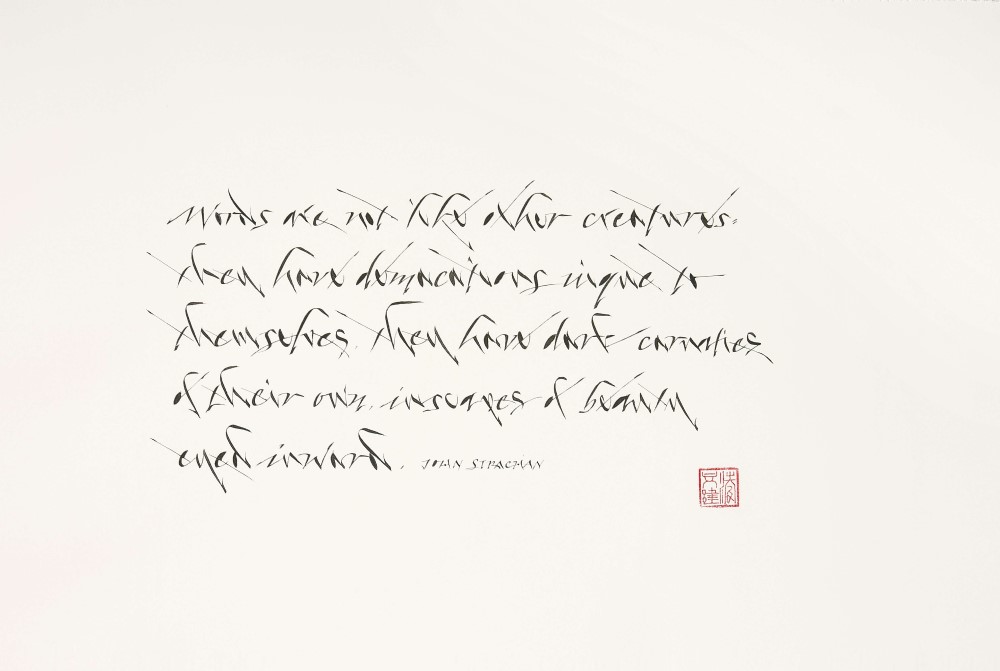 Words are not like other creatures:
they have domications unique to
themselves. They have dark carnalities
of their own. inscapes of beauty
eyed inward. JOHN STRACHAN